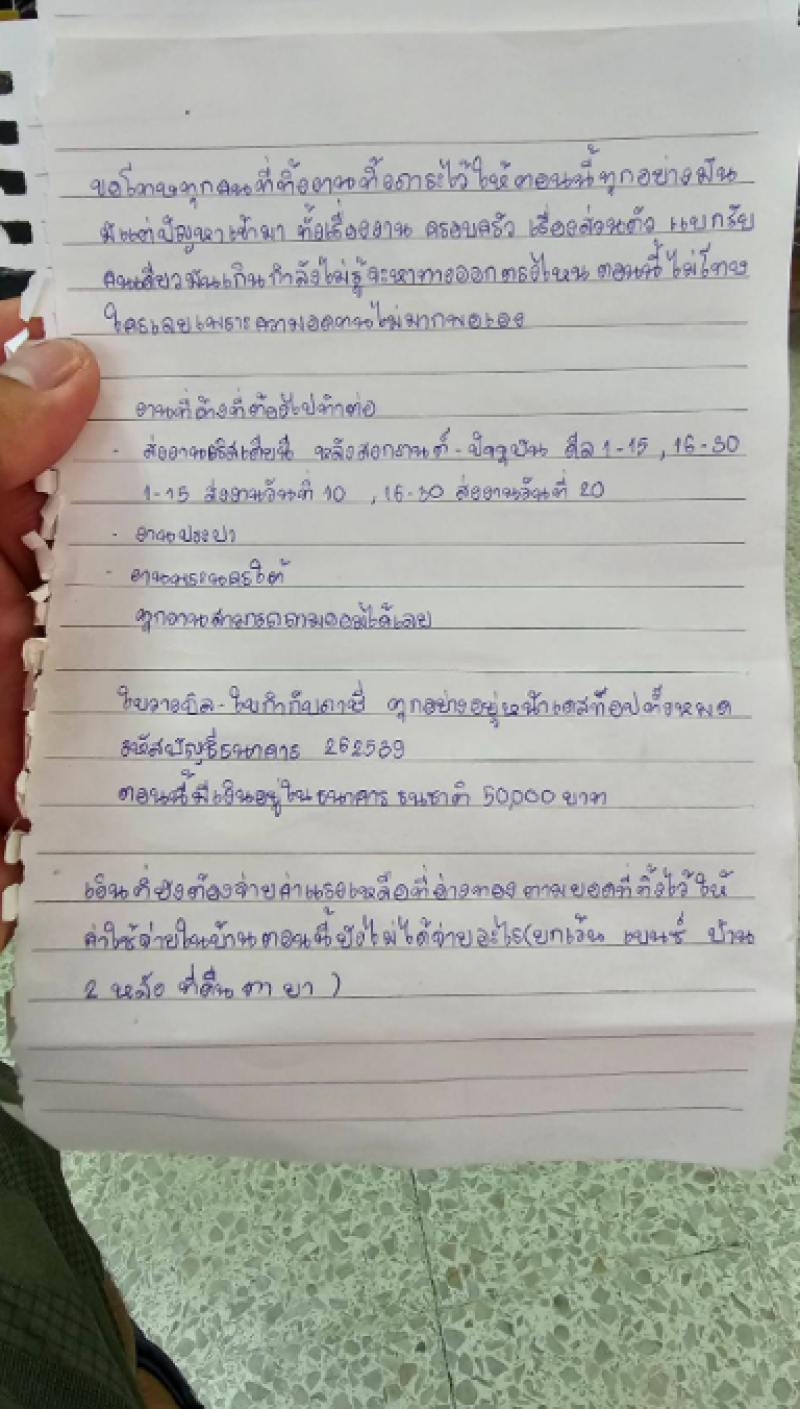 ขอโทษทุกคนที่ทิ้งงานทิ้งภาระไว้ให้ตอนนี้ทุกอย่างมัน
มีแต่ปัญหาเข้ามา ทั้งเรื่องงาน ครอบครัว เรื่องส่วนตัว แบกรับ
คนเดียวมันเกินกำลังไม่รู้จะหาทางออกตรงไหน ตอนนี้ไม่โทษ
ใครเลยเพราะความอดทนไม่มากพอเอง
งานที่ค้างที่ต้องไปทำต่อ
- ส่งงานคริสเตียนี หลังสงกรานต์ - ปัจจุบัน คือ 1-15 , 16-30
1-15 ส่งงานวันที่ 10 , 16-30 ส่งงานวันที่ 20
- งานประปา
- งานพระนครใต้
ทุกงานสามารถถามออมได้เลย
ใบวางบิล - ใบกำกับภาษี ทุกอย่างอยู่หน้าเดสท็อปทั้งหมด
รหัสบัญชีธนาคาร 262539
ตอนนี้มีเงินอยู่ในธนาคาร ธนชาติ 50,000 บาท
เงินที่ยังต้องจ่ายค่าแรงเหลือที่อ่างทอง ตามยอดที่ทิ้งไว้ให้
ค่าใช้จ่ายในบ้านตอนนี้ยังไม่ได้จ่ายอะไร(ยกเว้น เบนซ์ บ้าน
2 หลัง ที่ดิน ตา ยา )